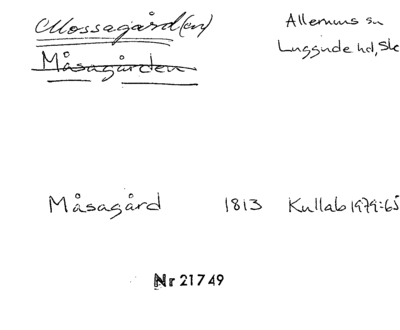 Mossagård(en)
Måsagården
Allerums sn
Luggude hd, Sk
Måsagård 1813 Kullab 1979:65
Nr 21749